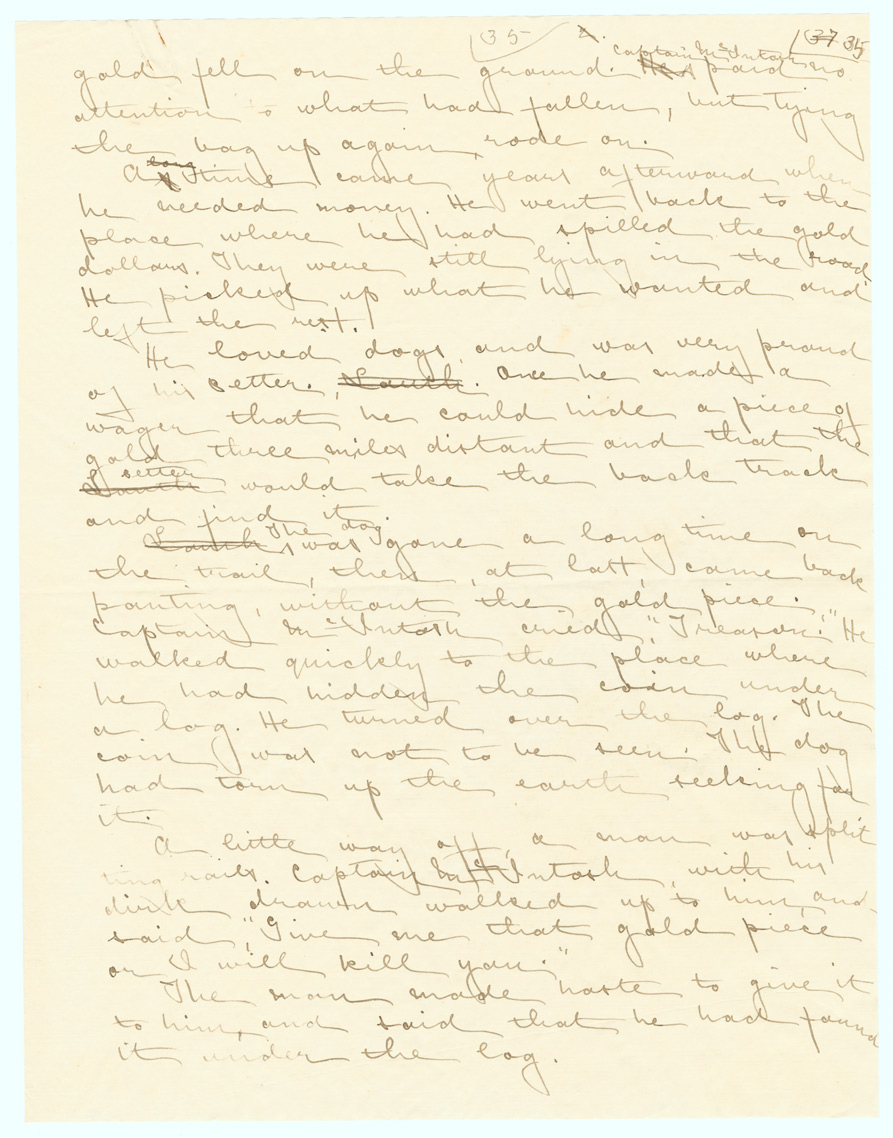 35 37 35
Captain McIntosh
gold fell on the ground. He paid no
attention to what had fallen, but tying
the bag up again, rode on.
long
A time came years afterward when
he needed money. He went back to the
place where he had spilled the gold
dollars. They were still lying in the road.
He picked up what he wanted and
left the rest.
He loved dogs, and was very proud
of his setter, Lauth. Once he made a
wager that he could hide a piece of
gold three miles distant and that the
setter
Lauth would take the back track
and find it.
The dog
Lauth was gone a long time on
the trail, then, at last, came back
panting, without the gold piece.
Captain McIntosh cried, "Treason!" He
walked quickly to the place where
he had hidden the coin under
a log. He turned over the log. The
coin was not to be seen. The dog
had torn up the earth seeking for
it.
A little way off, a man was split
ting rails. Captain McIntosh, with his
dirk drawn walked up to him, and
said, "Give me that gold piece
or I will kill you."
The man made haste to give it
to him, and said that he had found
it under the log.